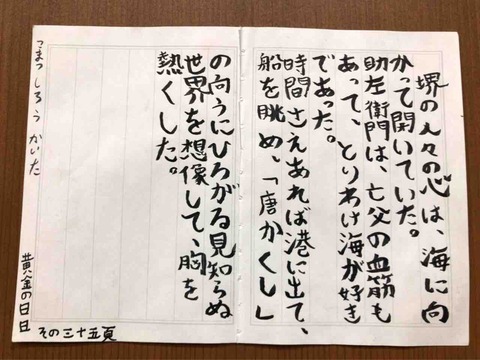 堺の人々の心は、海に向
かって開いていた。
助左衛門は、亡父の血筋も
あって、とりわけ海が好き
であった。
時間さえあれば港に出て、
船を眺め、「唐かくし」
の向うにひろがる見知らぬ
世界を想像して、胸を
熱くした。
こまつ しろう かいた
黄金の日日
その三十五頁